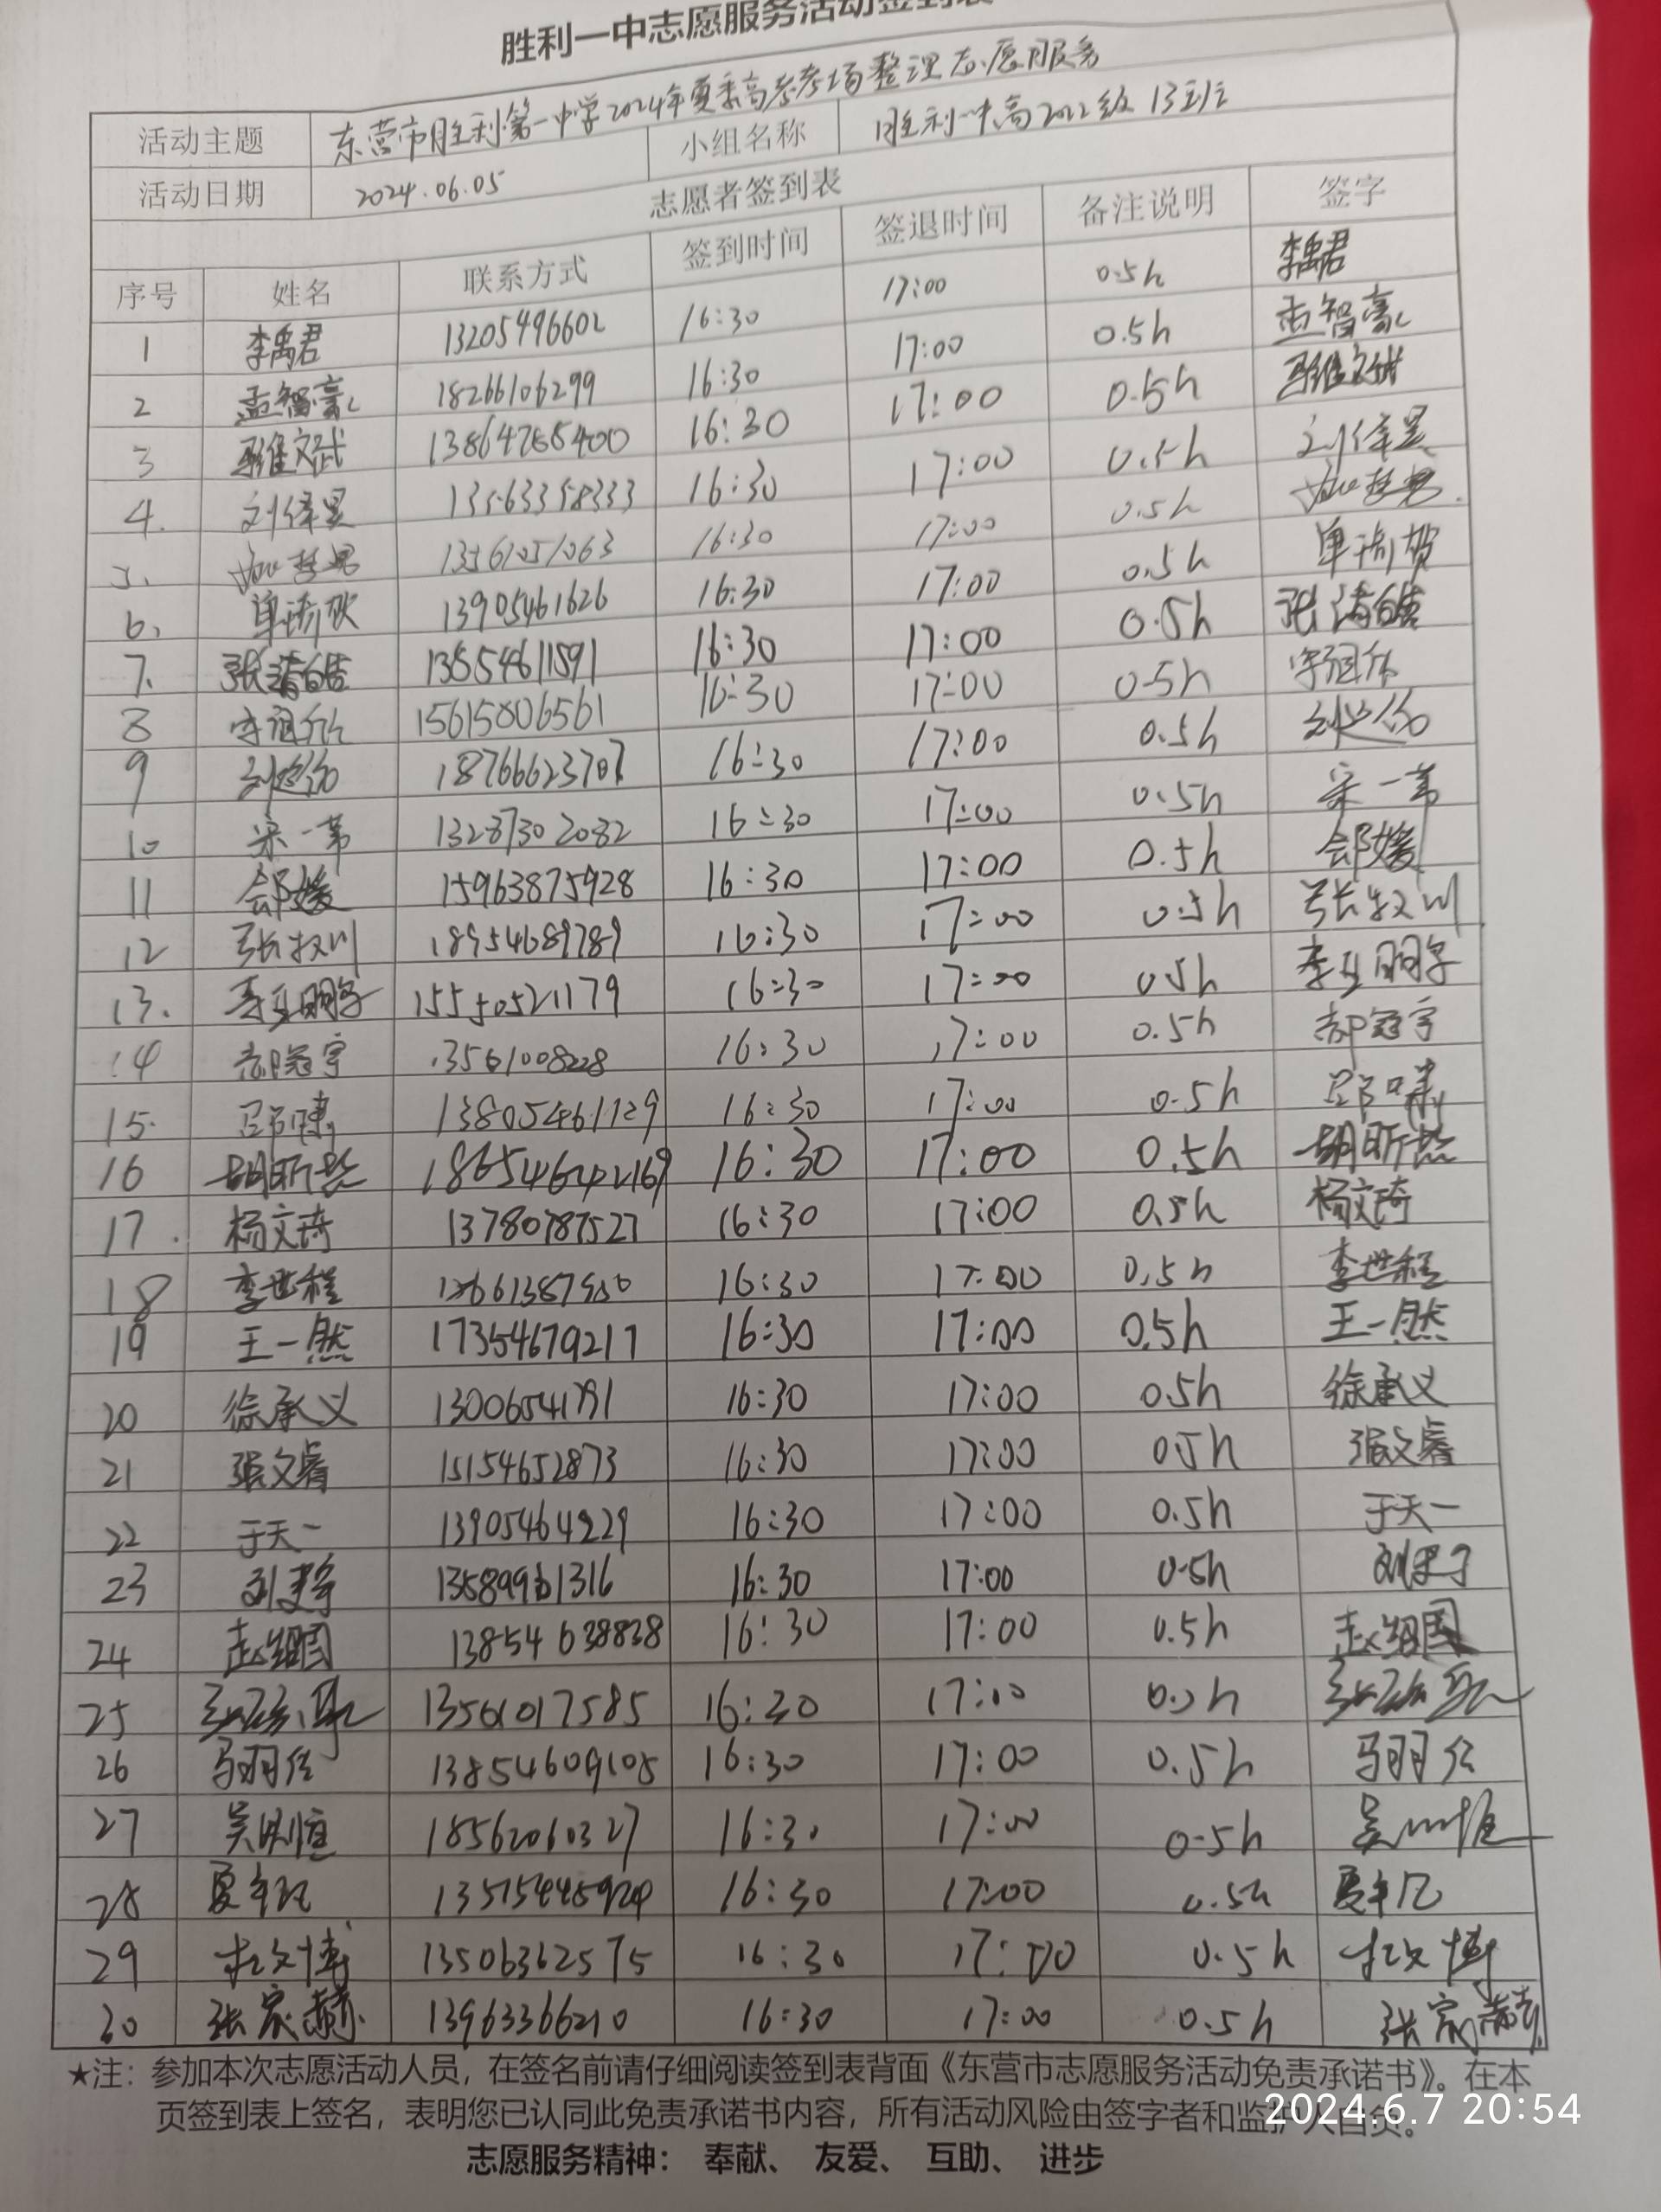 胜利一中志愿服务活动签到表
活动主题 东营市胜利第一中学2024年夏季高考考场整理志愿服务
活动日期 2024.06.05 小组名称 胜利一中高2022级13班
志愿者签到表
序号 姓名 联系方式 签到时间 签退时间 备注说明 签字
1 李禹君 13205496602 16:30 17:00 0.5h 李禹君
2 孟智豪 18266106299 16:30 17:00 0.5h 孟智豪
3 13864786400 16:30 17:00 0.5h
4. 刘泽昊 13563358333 16:30 17:00 0.5h 刘泽昊
5. 16:30 17:00 0.5h
6. 13905461626 16:30 17:00 0.5h
7. 张清皓 13854611591 16:30 17:00 0.5h 张清皓
8 15615806561 16:30 17:00 0.5h
9 18766623707 16:30 17:00 0.5h
10 宋一苇 13287302082 16:30 17:00 0.5h 宋一苇
11 邰媛 15963875928 16:30 17:00 0.5h 邰媛
12 张牧川 18954689789 16:30 17:00 0.5h 张牧川
13. 15550521179 16:30 17:00 0.5h
14 郝冠宇 13561008228 16:30 17:00 0.5h 郝冠宇
15. 13805461129 16:30 17:00 0.5h
16 胡昕然 16:30 17:00 0.5h 胡昕然
17. 杨文琦 13780787527 16:30 17:00 0.5h 杨文琦
18 李世程 16:30 17:00 0.5h 李世程
19 王一然 17354679217 16:30 17:00 0.5h 王一然
20 徐承义 13006541791 16:30 17:00 0.5h 徐承义
21 张文睿 15154652873 16:30 17:00 0.5h 张文睿
22 于天一 13905464929 16:30 17:00 0.5h 于天一
23 13589961316 16:30 17:00 0.5h
24 13854638838 16:30 17:00 0.5h
25 13561017585 16:30 17:00 0.5h
26 13854609105 16:30 17:00 0.5h
27 18562060327 16:30 17:00 0.5h
28 16:30 17:00 0.5h
29 杜文博 13506362575 16:30 17:00 0.5h 杜文博
30 张家赫 13963366210 16:30 17:00 0.5h 张家赫
★注：参加本次志愿活动人员，在签名前请仔细阅读签到表背面《东营市志愿服务活动免责承诺书》。在本
页签到表上签名，表明您已认同此免责承诺书内容，所有活动风险由签字者和监护人自负。
2024.6.7 20:54
志愿服务精神： 奉献、 友爱、 互助、 进步